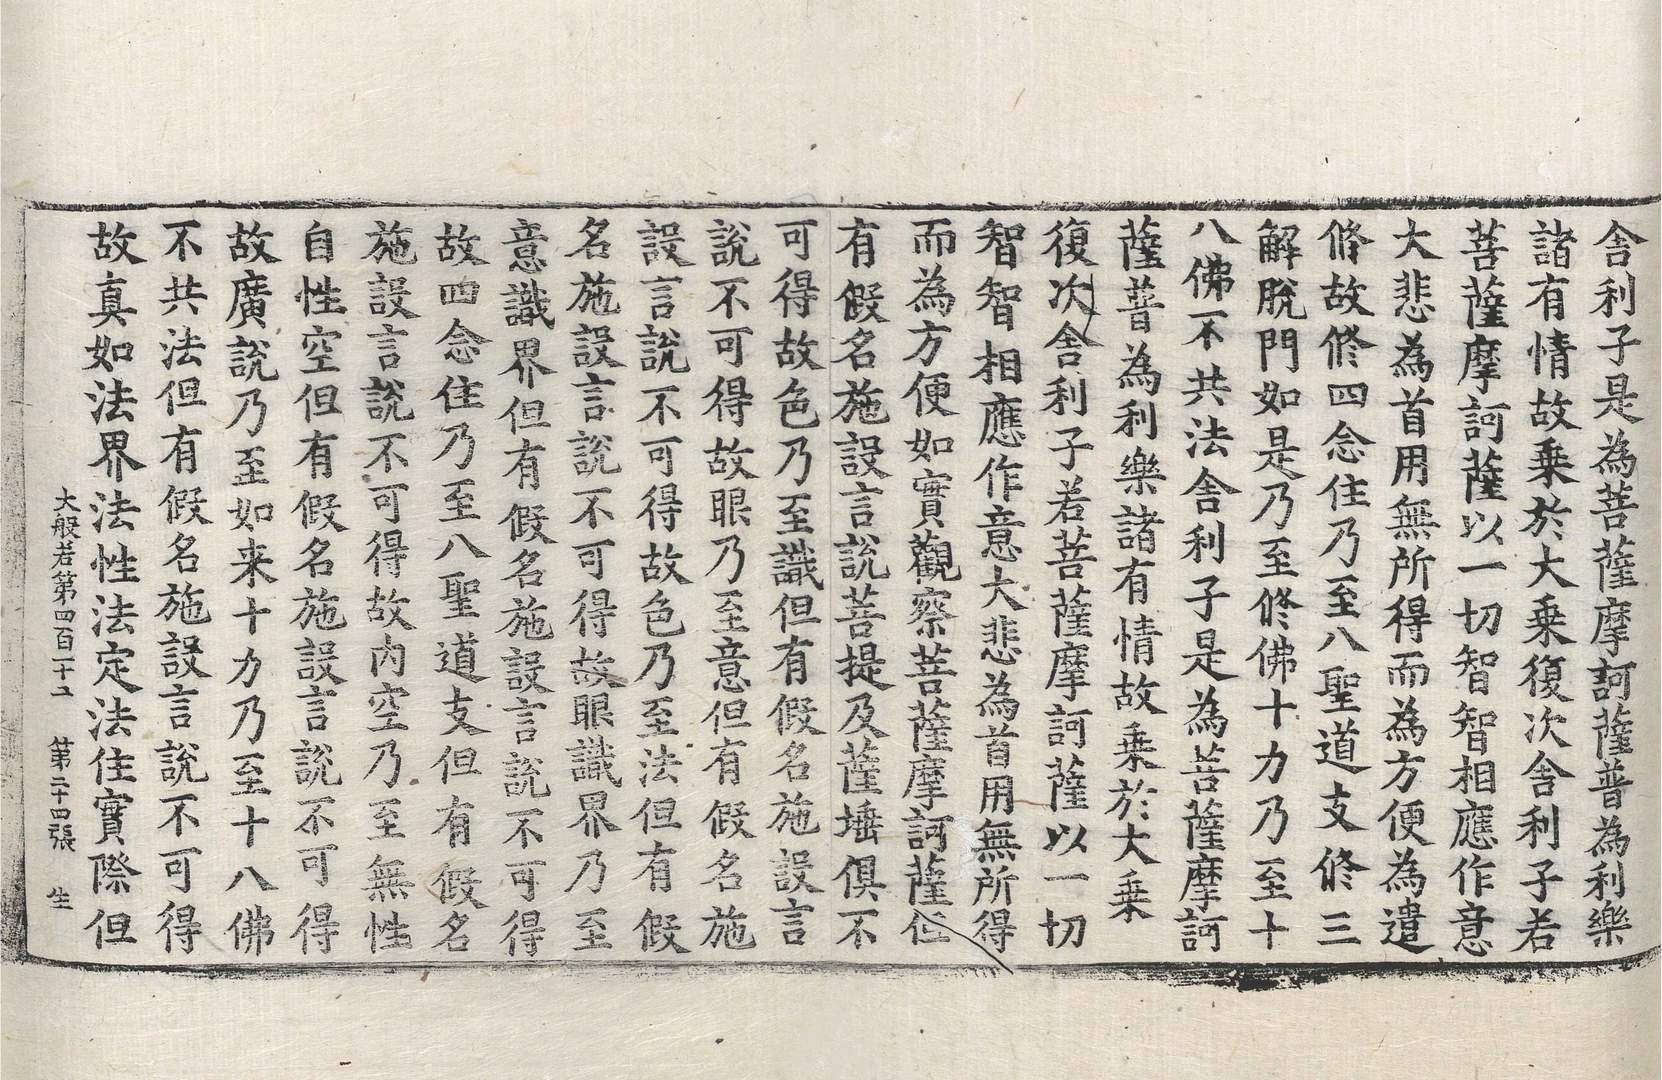 舎利子是為菩薩摩訶薩普為利樂
諸有情故乗於大乗復次舎利子若
菩薩摩訶薩以一切智智相應作意
大悲為首用無所得而為方便為遣
脩故修四念住乃至八聖道支修三
解脫門如是乃至修佛十力乃至十
八佛不共法舎利子是為菩薩摩訶
薩普為利樂諸有情故乗於大乗
復次舎利子若菩薩摩訶薩以一切
智智相應作意大悲為首用無所得
而為方便如實觀察菩薩摩訶薩但
有假名施設言說菩提及薩埵俱不
可得故色乃至識但有假名施設言
說不可得故眼乃至意但有假名施
設言說不可得故色乃至法但有假
名施設言說不可得故眼識界乃至
意識界但有假名施設言說不可得
故四念住乃至八聖道支但有假名
施設言說不可得故內空乃至無性
自性空但有假名施設言說不可得
故廣說乃至如来十力乃至十八佛
不共法但有假名施設言說不可得
故真如法界法性法定法住實際但
大般若第四百一十二 第二十四張 生